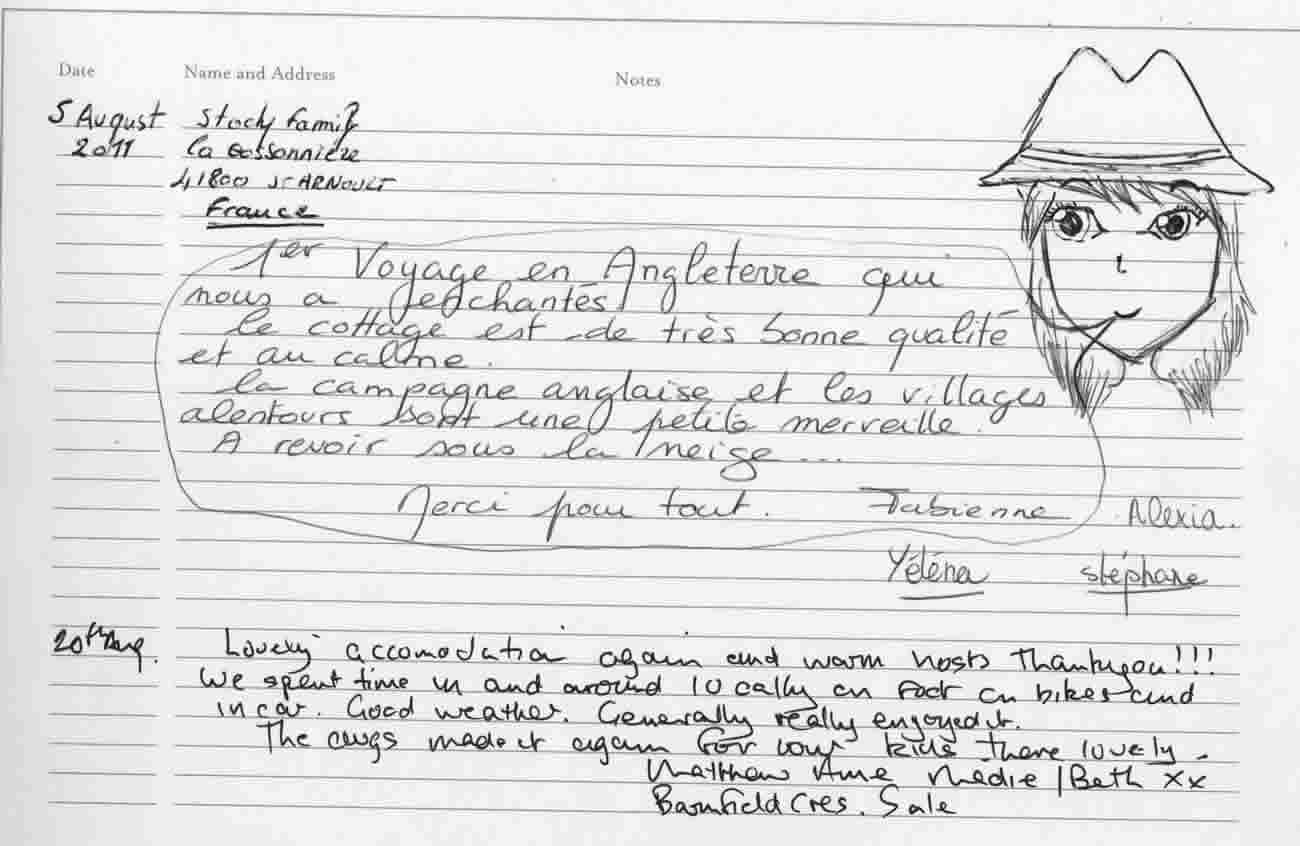 Date Name and Address Notes
5 August Stody Family
2011 la Gossonnière
41800 St ARNOULT
France
1er Voyage en Angleterre qui
nous a enchantés
le cottage est de très bonne qualité
et au calme.
la campagne anglaise et les villages
alentours sont une petite merveille.
A revoir sous la neige...
Merci pour tout. Fabienne Alexia.
Yéléna stéphane
20th Aug. Lovely accomodation again and warm hosts Thankyou!!!
We spent time in and around locally on foot on bikes and
in car. Good weather. Generally really engoyed it.
The dogs made it again for our kids there lovely.
Matthew Anne Maddie / Beth xx
Barnfield Cres. Sale